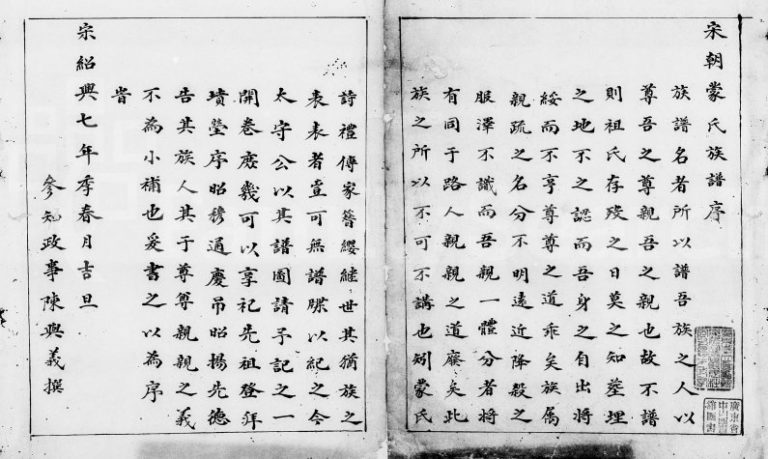 宋朝蒙氏族譜序
族譜名者所以譜吾族之人以
尊吾之尊親吾之親也故不譜
則祖氏存歿之日莫之知塟埋
之地不之認而吾身之自出將
綏而不亨尊尊之道乖矣族屬
親疏之名分不明遠近降殺之
服澤不識而吾親一體分者將
有同于路人親親之道廢矣此
族之所以不可不講也矧蒙氏
廣東省
詩禮傳家簪纓継世其猶族之
表表者豈可無譜牒以紀之今
太守公以其譜圖請予記之一
開卷庶幾可以享祀先祖登拜
墳塋序昭穆通慶吊昭揚先德
告其族人其于尊尊親親之義
不為小補也爰書之以為序
旹
宋紹興七年季春月吉旦
參知政事陳與義撰